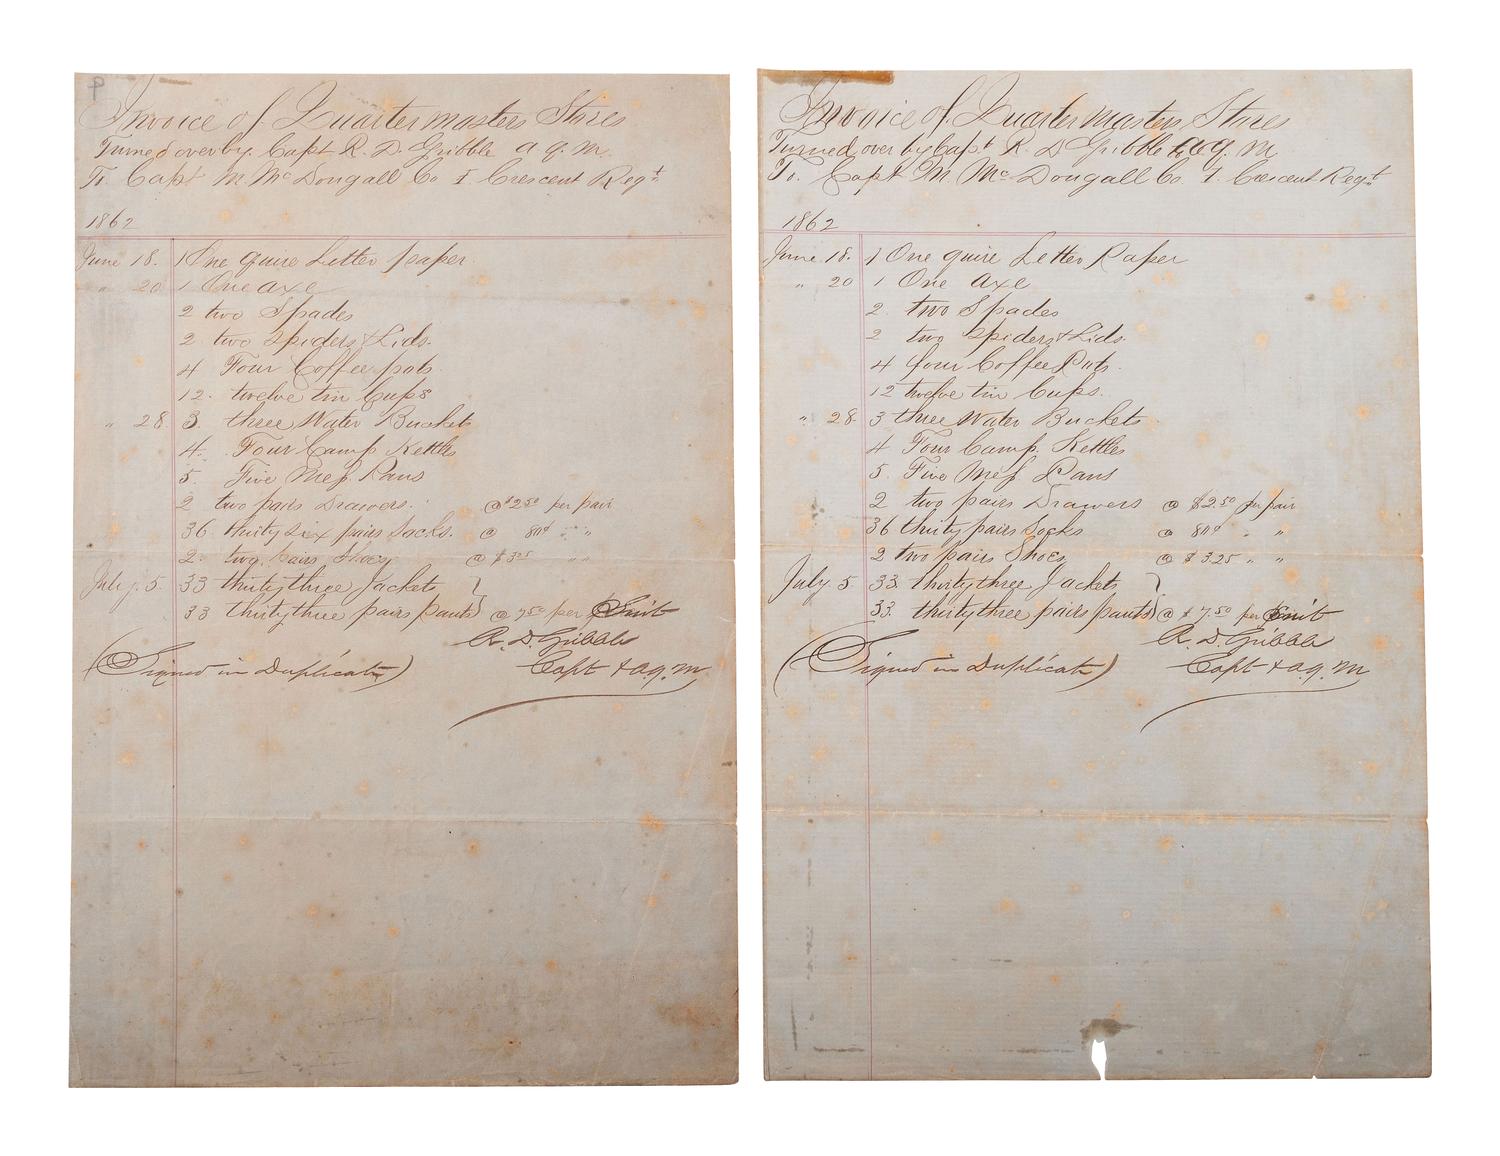 P
Invoice of Quartermasters Stores
Turned over by Capt R. D. Gribble A. Q. M.
To Capt M McDougall Co I. Crescent Regt
1862
June 18. 1 One quire Letter paper
" 20 1 One axe
2 two Spades
2 two Spiders & Lids.
4 Four Coffee pots
12. twelve tin Cups
" 28 3. three Water Buckets
4. Four Camp Kettles
5. Five Mess Pans
2 two pairs Drawers. @ $2.50 per pair
36. thirty six pairs Socks. @ 80¢ " "
2. two pairs Shoes @ $3.25 " "
July. 5. 33 thirty three Jackets
33 thirty three pairs pants @ 7.50 per Suit
R. D. Gribble
(Signed in Duplicate) Capt & A. Q. M
Invoice of Quartermasters Stores
Turned over by Capt R. D Gribble A. Q. M
To. Capt M McDougall Co. I. Crescent Regt
1862
June 18. 1 One quire Letter Paper
" 20 1 One axe
2. two Spades
2 two Spiders & Lids.
4 four Coffee Pots.
12 twelve tin Cups.
" 28 3 three Water Buckets
4 Four Camp. Kettles
5. Five Mess Pans
2 two pairs Drawers @ $2.50 per pair
36 thirty pairs Socks @ 80¢ " "
2 two pair Shoes @ $3.25 " "
July 5 33. thirty three Jackets
33. thirty three pairs pants @ $7.50 per Suit
R. D. Gribble
(Signed in Duplicate) Capt & A. Q. M